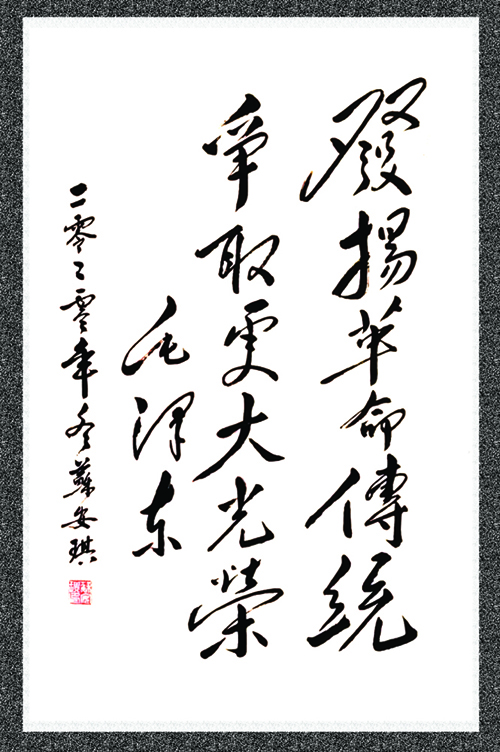 發揚革命傳統
爭取更大光榮
毛澤东
二零二零年冬蘇安琪